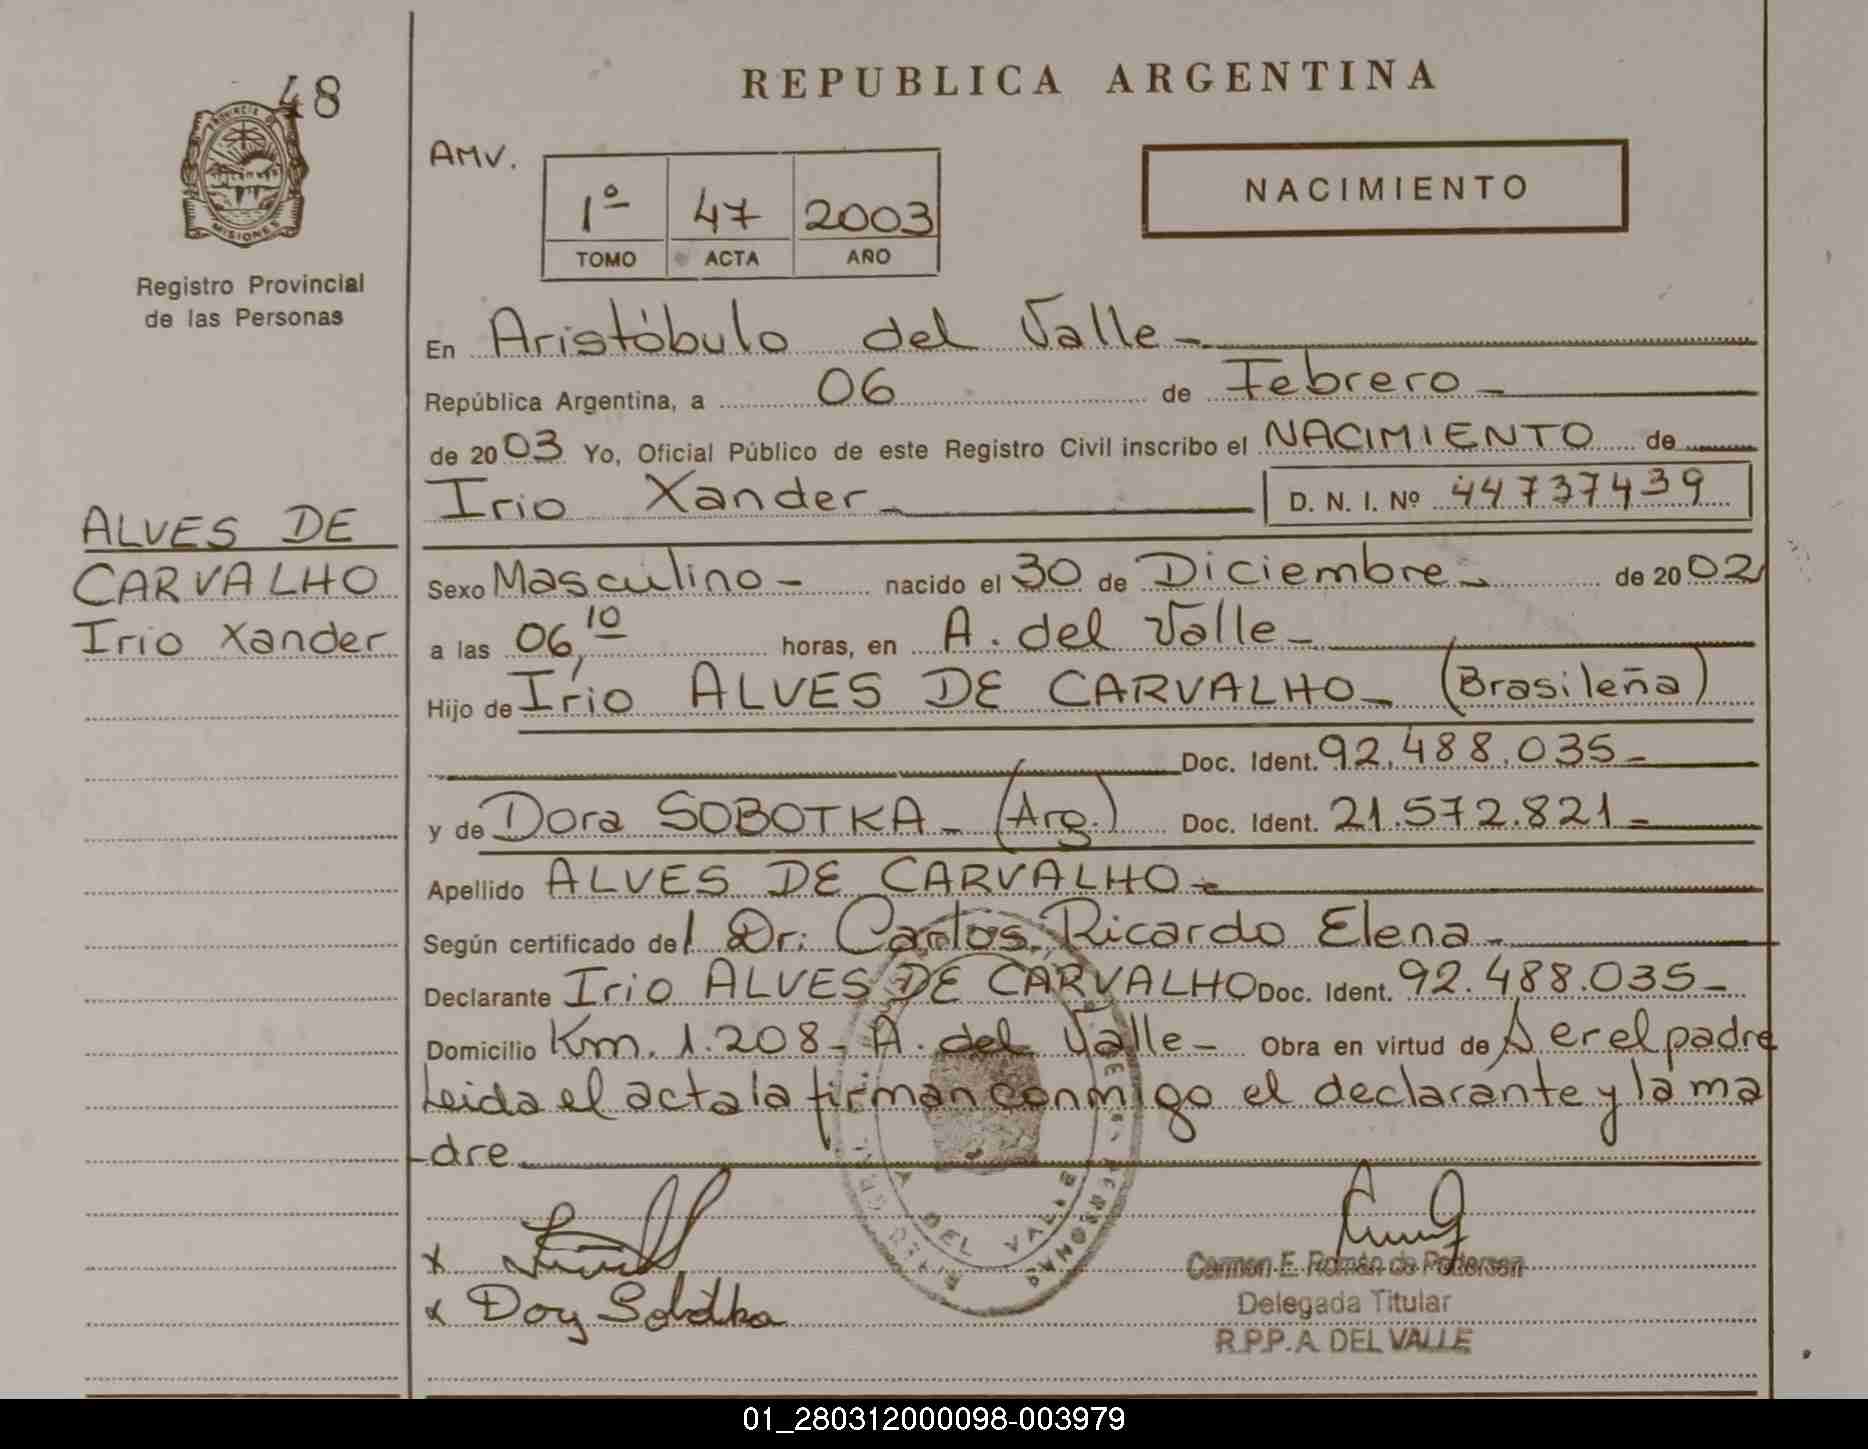 48
PROVINCIA DE
MISIONES
Registro Provincial
de las Personas
REPUBLICA ARGENTINA
AMV.
1º 47 2003
TOMO ACTA AÑO
NACIMIENTO
En Aristóbulo del Valle
República Argentina, a 06 de Febrero
de 2003 Yo, Oficial Público de este Registro Civil inscribo el NACIMIENTO de
Irio Xander D. N. I. Nº 44737439
ALVES DE
CARVALHO
Irio Xander
Sexo Masculino nacido el 30 de Diciembre de 2002
a las 06,10 horas, en A. del Valle
Hijo de Irio ALVES DE CARVALHO (Brasileña)
Doc. Ident. 92.488.035
y de Dora SOBOTKA (Arg.) Doc. Ident. 21.572.821
Apellido ALVES DE CARVALHO
Según certificado del Dr. Carlos Ricardo Elena
Declarante Irio ALVES DE CARVALHO Doc. Ident. 92.488.035
Domicilio Km. 1.208 A. del Valle Obra en virtud de Ser el padre
Leida el acta la firman conmigo el declarante y la ma
dre
x
x Dory Sobotka
A DEL VALLE
Carmen E. Román de Pedersen
Delegada Titular
R.P.P.A. DEL VALLE
01_280312000098-003979